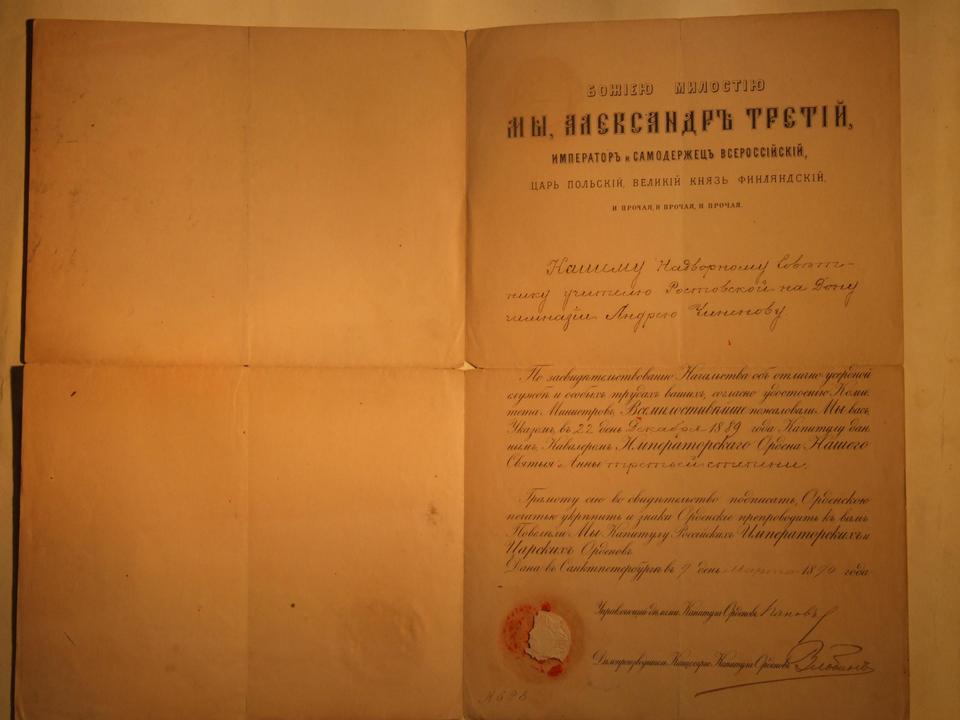 БОЖІЕЮ МИЛОСТІЮ
МЫ, АЛЕКСАНДРЪ ТРЕТІЙ,
ИМПЕРАТОРЪ и САМОДЕРЖЕЦЪ ВСЕРОССІЙСКІЙ,
ЦАРЬ ПОЛЬСКІЙ, ВЕЛИКІЙ КНЯЗЬ ФИНЛЯНДСКІЙ,
И ПРОЧАЯ, И ПРОЧАЯ, И ПРОЧАЯ.
Нашему Надворному Совѣт-
нику учителю Ростовской на Дону
гимназіи Андрею
По засвидѣтельствованію Начальства объ отлично усердной
службѣ и особыхъ трудахъ вашихъ, согласно удостоенію Коми
тета Министровъ, Всемилостивѣйше пожаловали Мы васъ
Указомъ въ 22 день Декабря 1889 года Капитулу дан
нымъ, Кавалеромъ Императорскаго Ордена Нашего
Святыя Анны третьей степени.
Грамоту сію во свидѣтельство подписать, Орденскою
печатью укрѣпить и знаки Орденскіе препроводить къ вамъ
Повелѣли Мы Капитулу Россійскихъ Императорскихъ и
Царскихъ Орденовъ.
Дана въ Санктпетербургѣ въ 9 день Марта 1890 года
Управляющій дѣлами Капитула Орденовъ
Дѣлопроизводитель Канцеляріи Капитула Орденовъ